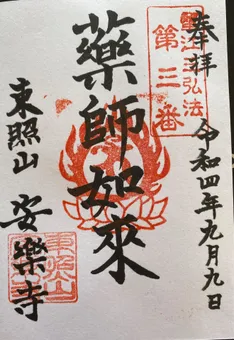 奉拝
令和四年九月九日
第三番
藥師如來
東照山
安樂寺
東照山